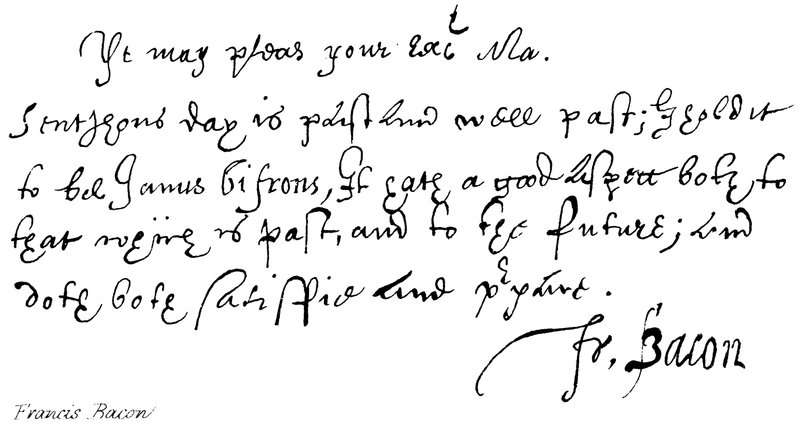 Yt may pleas your Exct Ma.
SentJhons day is past and well past; I hold it
to bee Janus bifrons, It hath a good aspect both to
that which is past, and to the future; and
doth both satisfie and prepare.
Fr. Bacon
Francis Bacon